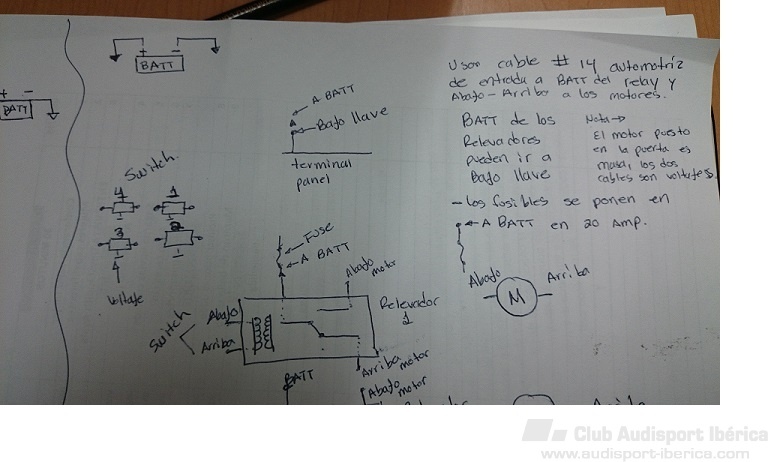 + -
BATT
+ -
BATT
A BATT
Bajo llave
terminal
panel
Usar cable # 14 automotriz
de entrada a BATT del relay y
Abajo - Arriba a los motores.
BATT de los
Relevadores
pueden ir a
Bajo llave
Nota →
El motor puesto
en la puerta es
masa, los dos
cables son voltajes.
- los fusibles se ponen en
A BATT en 20 Amp.
Switch
4 1
3 2
4
Voltaje
Fuse
A BATT
Abajo
motor
Relevador
1
Switch
Abajo
Arriba
Arriba
motor
BATT
Abajo
motor
Abajo
M
Arriba
Club Audisport Ibérica
www.audisport-iberica.com